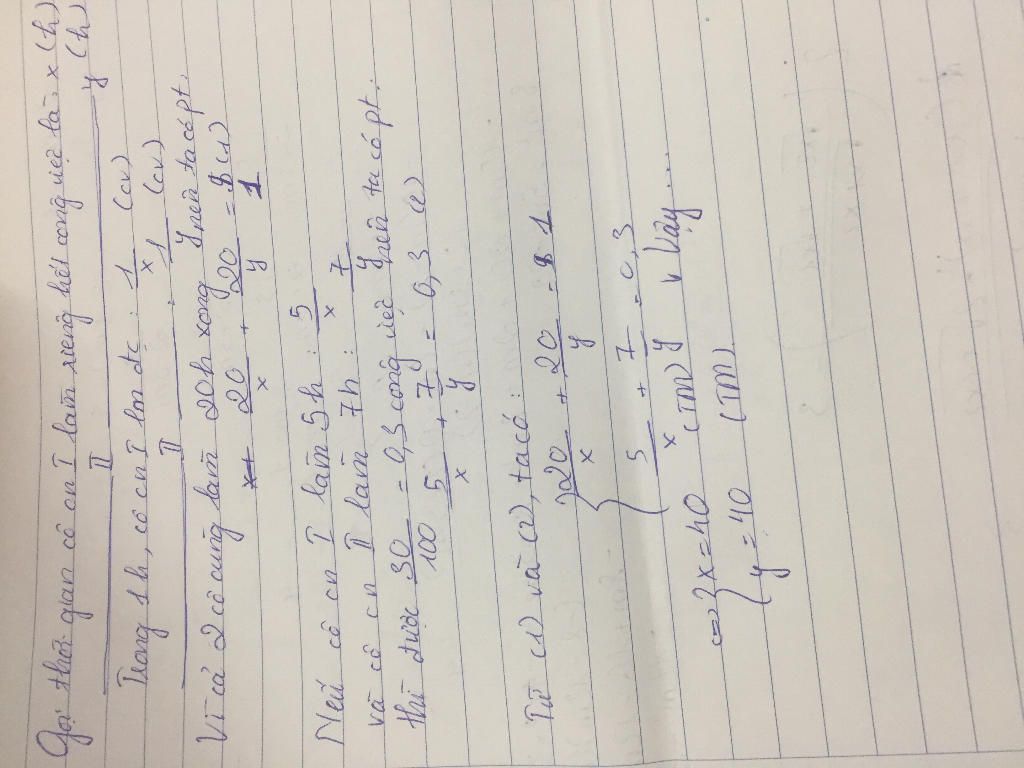 Gọi thời gian cô cn I làm riêng hết công việc là: x (h)
II y (h)
Trong 1h, cô cn I làm đc: 1/x (cv)
II : 1/y (cv)
Vì cả 2 cô cùng làm 20h xong nên ta có pt.
20/x + 20/y = 1 (1)
Nếu cô cn I làm 5h: 5/x
và cô cn II làm 7h: 7/y
thì được 30/100 = 0,3 công việc nên ta có pt:
5/x + 7/y = 0,3 (2)
Từ (1) và (2), ta có: { 20/x + 20/y = 1
5/x + 7/y = 0,3
<=> { x = 40 (TM) Vậy...
y = 40 (TM)